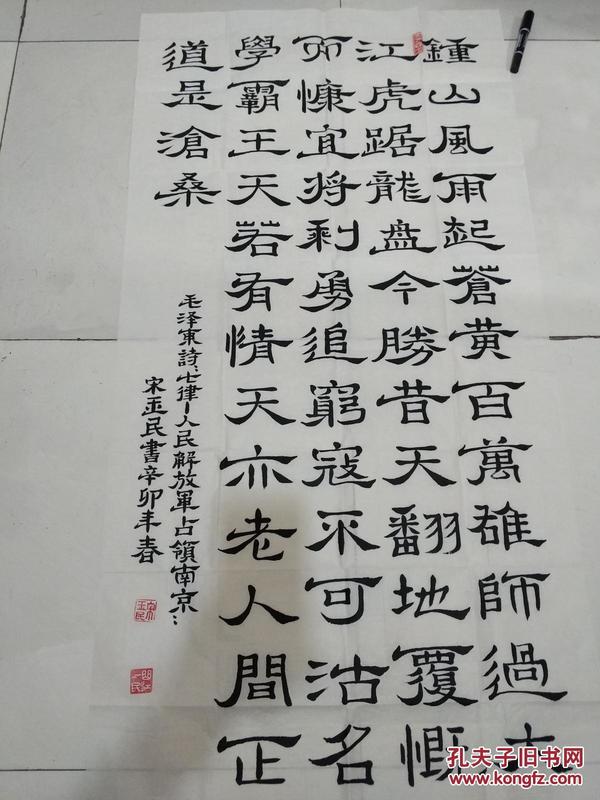 鍾山風雨起蒼黃百萬雄師過大
江虎踞龍盘今勝昔天翻地覆慨
而慷宜将剩勇追窮寇不可沽名
學霸王天若有情天亦老人間正
道是滄桑
毛泽東詩:七律—人民解放軍占領南京:
宋玉民書辛卯年春
孔夫子旧书网
www.kongfz.com